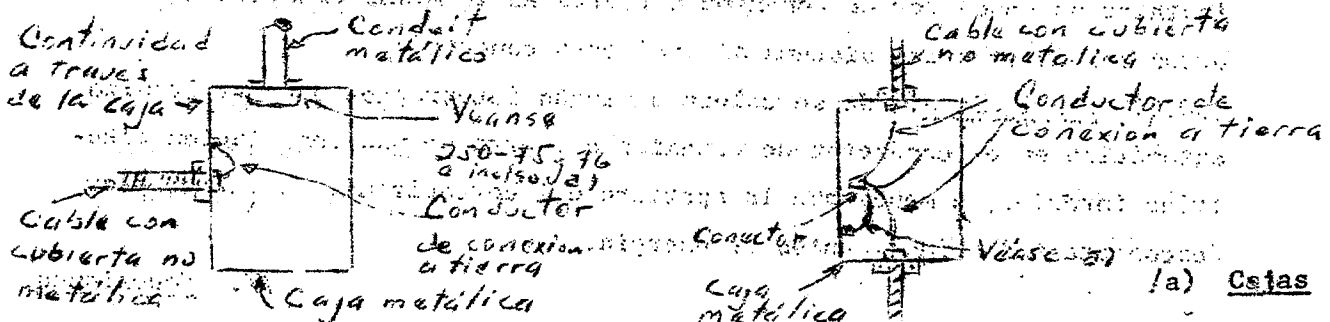 Continuidad
a traves
de la caja
Conduit
metálico
Véanse
250-75, 76
e inciso a)
Conductor
de conexion
a tierra
Cable con
cubierta no
metálica
Caja metálica
Cable con cubierta
no metalica
Conductor de
conexion a tierra
Conector
Véase a)
Caja
metálica
(a) Cajas